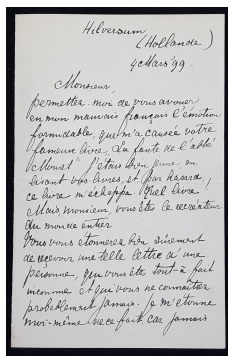 Hilversum
(Hollande)
4 Mars '99.
Monsieur,
permettez moi de vous avouer
en mon mauvais français l'émotion
formidable, que m'a causée votre
fameux livre, La faute de l'abbé
Mouret. J'étais bien jeune en
lisant vos livres, et par hasard,
ce livre m'échappa. Quel livre!
Mais, monsieur, vous êtes le recréateur
du monde entier.
Vous vous étonnerez bien sûrement
de recevoir une telle lettre d'une
personne, qui vous est tout à fait
inconnue et qui vous ne connaîtrez
probablement jamais. Je m'étonne
moi-même de ce fait, car jamais